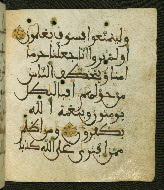 وليتمتعوا فسوف يعلمون
أولم يروا أنا جعلنا حرما
ءامنا ويتخطف الناس
من حولهم أفبالبطل
يؤمنون وبنعمة الله
يكفرون ومن أظلم
ممن افترى على الله كذبا